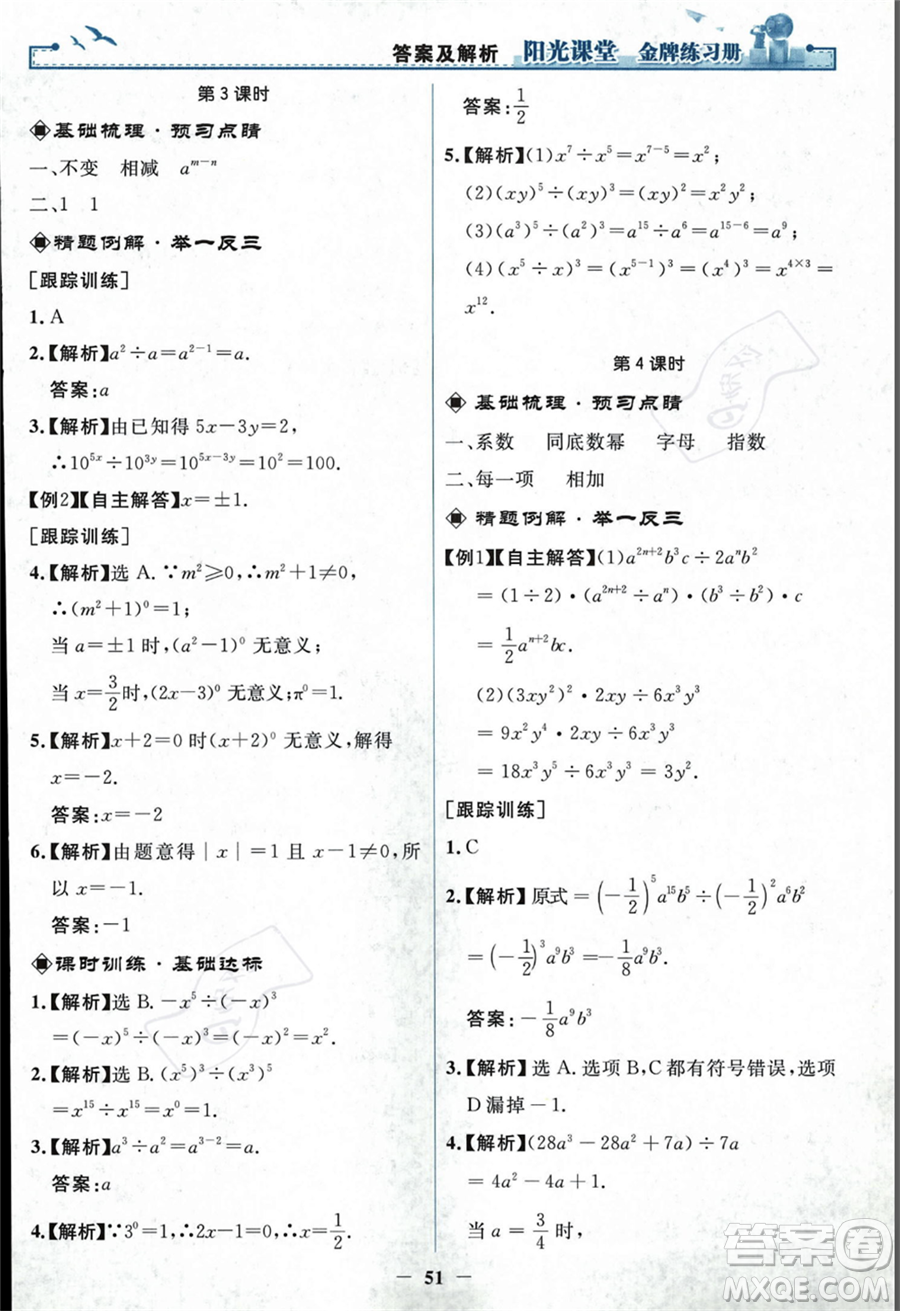 答案及解析 阳光课堂 金牌练习册
第3课时
基础梳理·预习点睛
一、不变 相减 a^{m-n}
二、1 1
精题例解·举一反三
[跟踪训练]
1. A
2.【解析】a²÷a=a^{2-1}=a.
答案:a
3.【解析】由已知得 5x-3y=2,
∴10^{5x}÷10^{3y}=10^{5x-3y}=10²=100.
【例2】【自主解答】x=±1.
[跟踪训练]
4.【解析】选 A. ∵m²≥0,
∴(m²+1)⁰=1;
当 a=±1时,(a²-1)⁰ 无意义;
当 x=3/2时,(2x-3)⁰ 无意义;π⁰=1.
5.【解析】x+2=0 时(x+2)⁰ 无意义,解得
x=-2.
答案:x=-2
6.【解析】由题意得|x|=1 且 x-1≠0,所
以 x=-1.
答案:-1
课时训练·基础达标
1.【解析】选 B. -x⁵÷(-x)³
=(-x)⁵÷(-x)³=(-x)²=x².
2.【解析】选 B. (x⁵)³÷(x³)⁵
=x¹⁵÷x¹⁵=x⁰=1.
3.【解析】a³÷a²=a^{3-2}=a.
答案:a
4.【解析】∵3⁰=1,∴2x-1=0,∴x=1/2.
答案:1/2
5.【解析】(1)x⁷÷x⁵=x^{7-5}=x²;
(2)(xy)⁵÷(xy)³=(xy)²=x²y²;
(3)(a³)⁵÷(a²)³=a¹⁵÷a⁶=a^{15-6}=a⁹;
(4)(x⁵÷x)³=(x^{5-1})³=(x⁴)³=x^{4×3}=
x¹².
第4课时
基础梳理·预习点睛
一、系数 同底数幂 字母 指数
二、每一项 相加
精题例解·举一反三
【例1】【自主解答】(1)a^{2n+2}b³c÷2aⁿb²
=(1÷2)·(a^{2n+2}÷aⁿ)·(b³÷b²)·c
=1/2 a^{n+2}bc.
(2)(3xy²)²·2xy÷6x³y³
=9x²y⁴·2xy÷6x³y³
=18x³y⁵÷6x³y³=3y².
[跟踪训练]
1. C
2.【解析】原式=(-1/2)⁵a¹⁵b⁵÷(-1/2)²a⁶b²
=(-1/2)³a⁹b³=-1/8a⁹b³
答案:-1/8a⁹b³
3.【解析】选 A. 选项 B,C 都有符号错误,选项
D漏掉-1.
4.【解析】(28a³-28a²+7a)÷7a
=4a²-4a+1.
当 a=3/4时,
51
答案圈
MXQE.COM